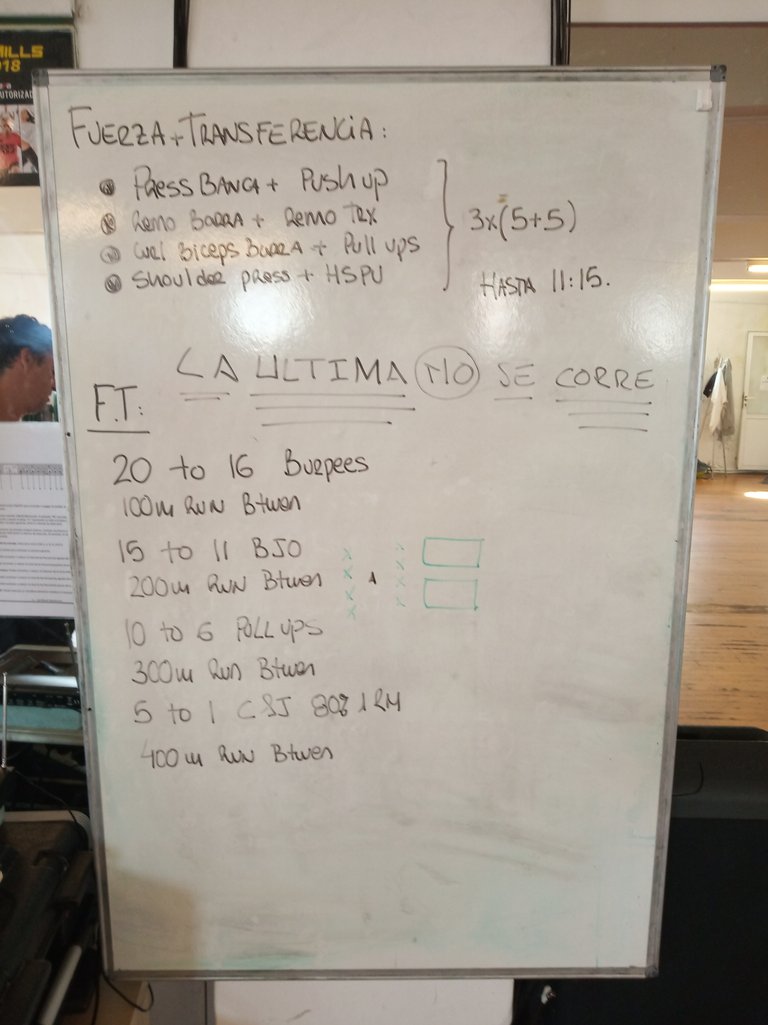 MILLS
18
UTORIZAD
FUERZA + TRANSFERENCIA:
PRESS BANCA + PUSH UP
REMO BARRA + REMO TRX
CURL BICEPS BARRA + PULL UPS
SHOULDER PRESS + HSPU
3x(5+5)
HASTA 11:15.
LA ULTIMA NO SE CORRE
F.T:
20 to 16 BURPEES
100m RUN Btwen
15 to 11 BJO
200m RUN Btwen
10 to 6 PULL UPS
300m RUN Btwen
5 to 1 C&J 80% 1RM
400m RUN Btwen